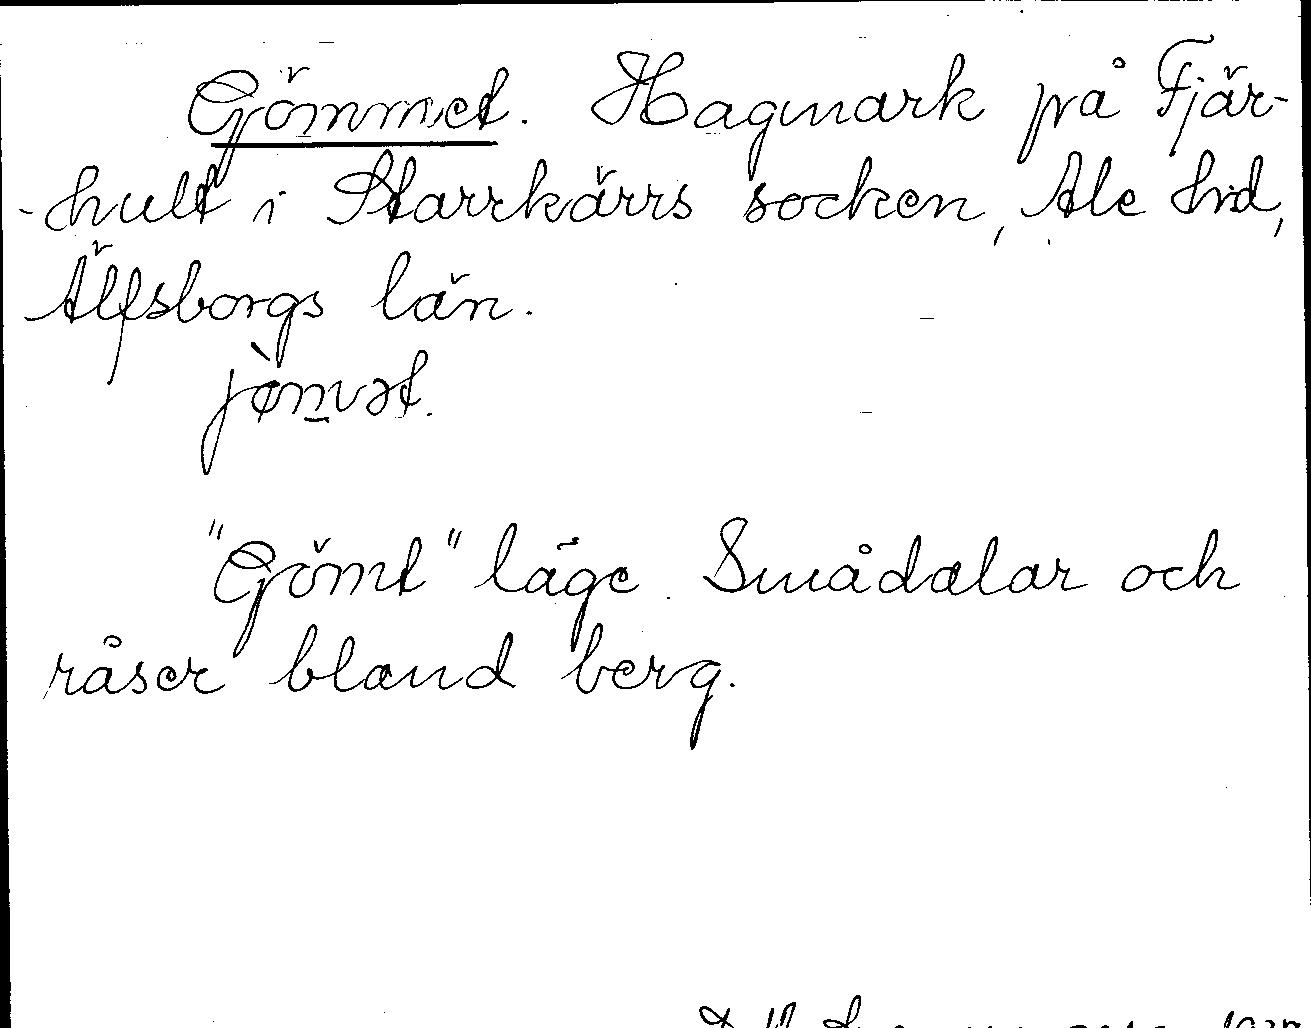 Gömmet. Hagmark på Fjär-
-hult i Starrkärrs socken, Ale hrd,
Älfsborgs län.
jòm̲ət.
"Gömt" läge. Smådalar och
råser bland berg.